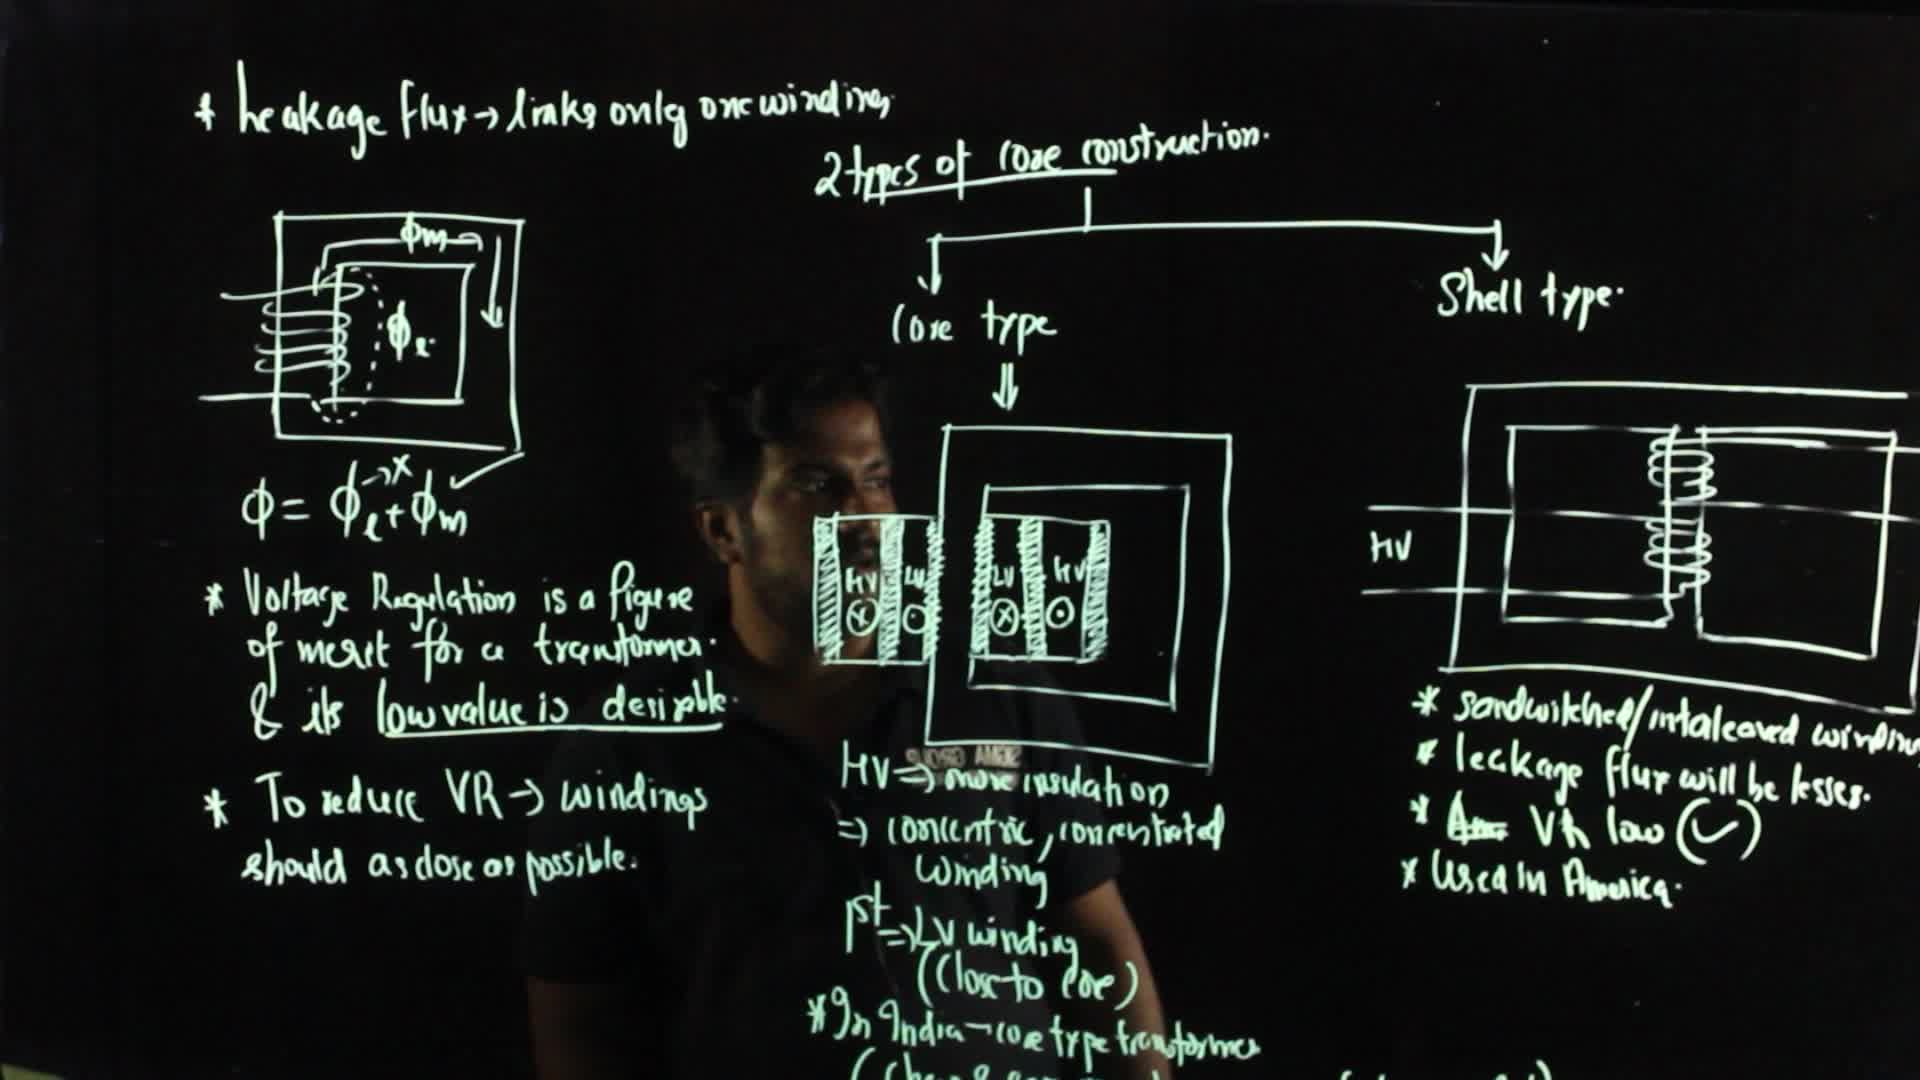 * Leakage flux → links only one winding
φm
φl.
φ = φl + φm
→ x
* Voltage Regulation is a figure
of merit for a transformer.
& its low value is desirable.
* To reduce VR → windings
should as close as possible.
2 types of core construction.
Core type
HV LV LV HV
HV ⇒ more insulation
⇒ concentric, concentrated
winding
1st ⇒ LV winding
(Close to core)
* In India - core type transformer
Shell type.
HV
* sandwitched/intaleaved winding
* leakage flux will be lesser.
* VR low (✓)
* Used in America.